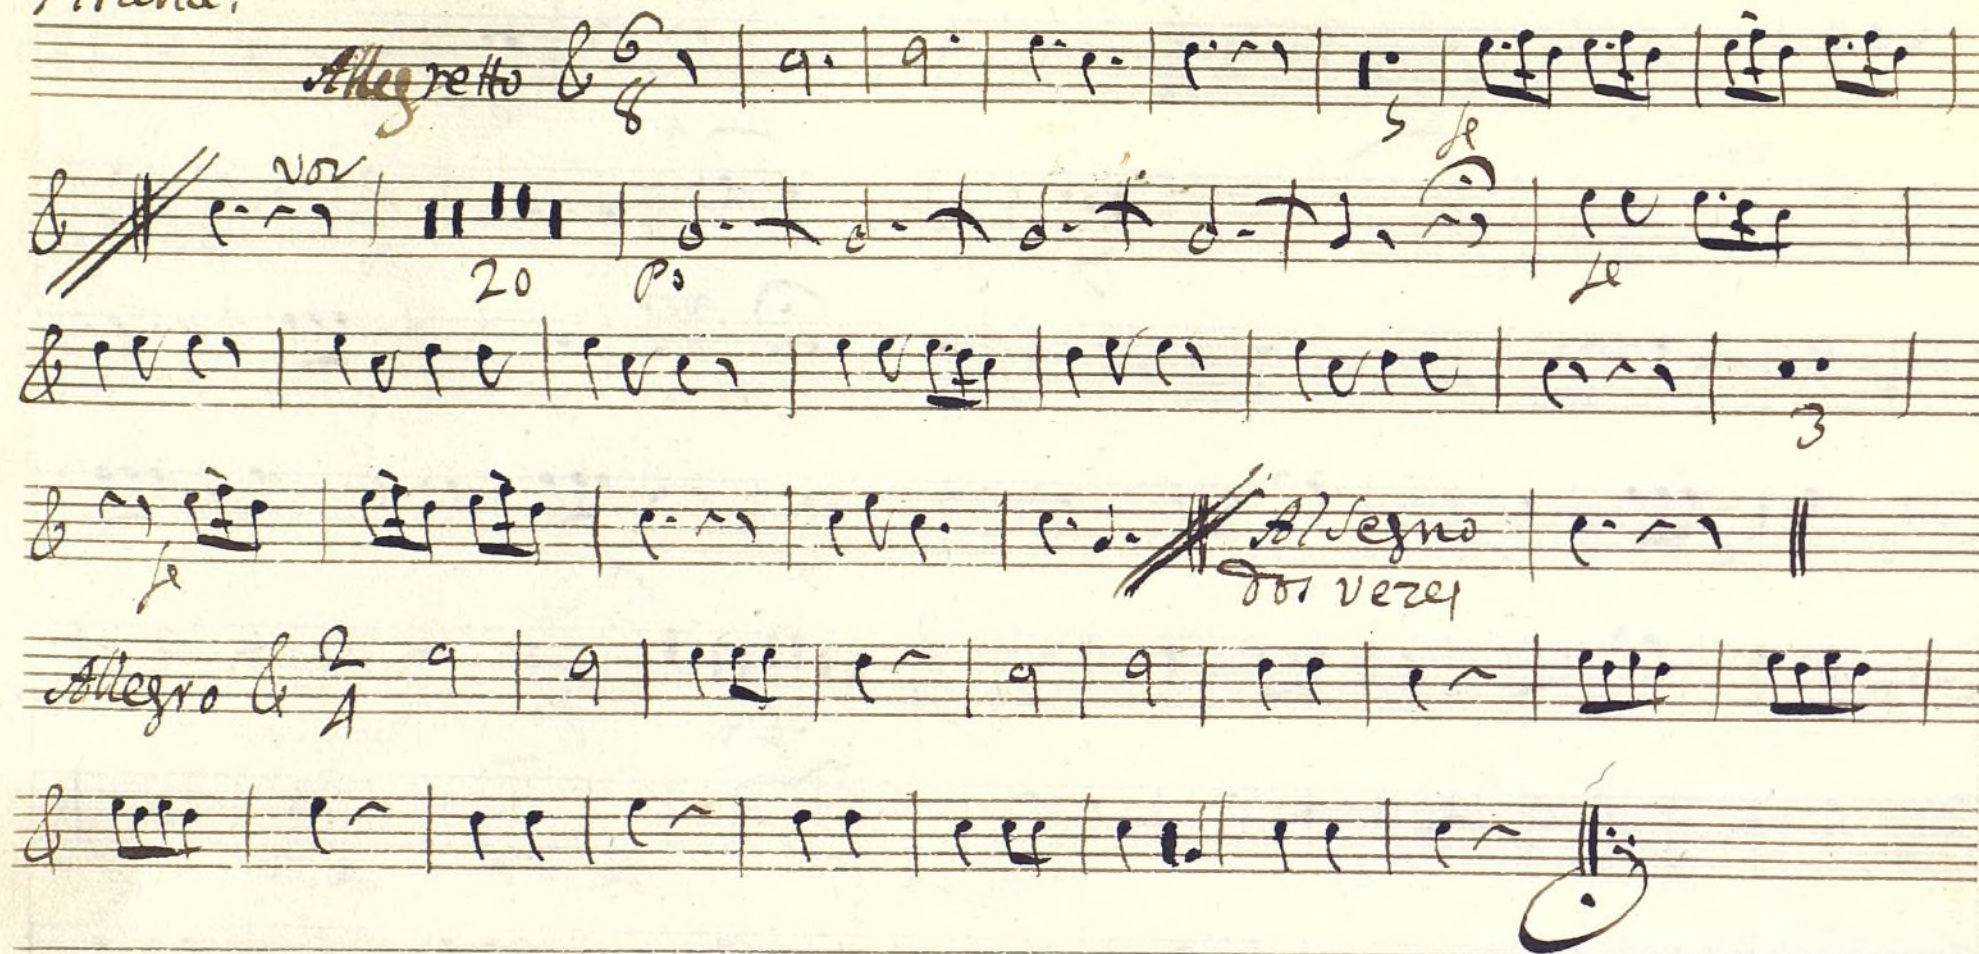 Allegretto 6 8
5 fe
voz
20 Po fe
3
fe Al Segno
dos vezes
Allegro 2 4